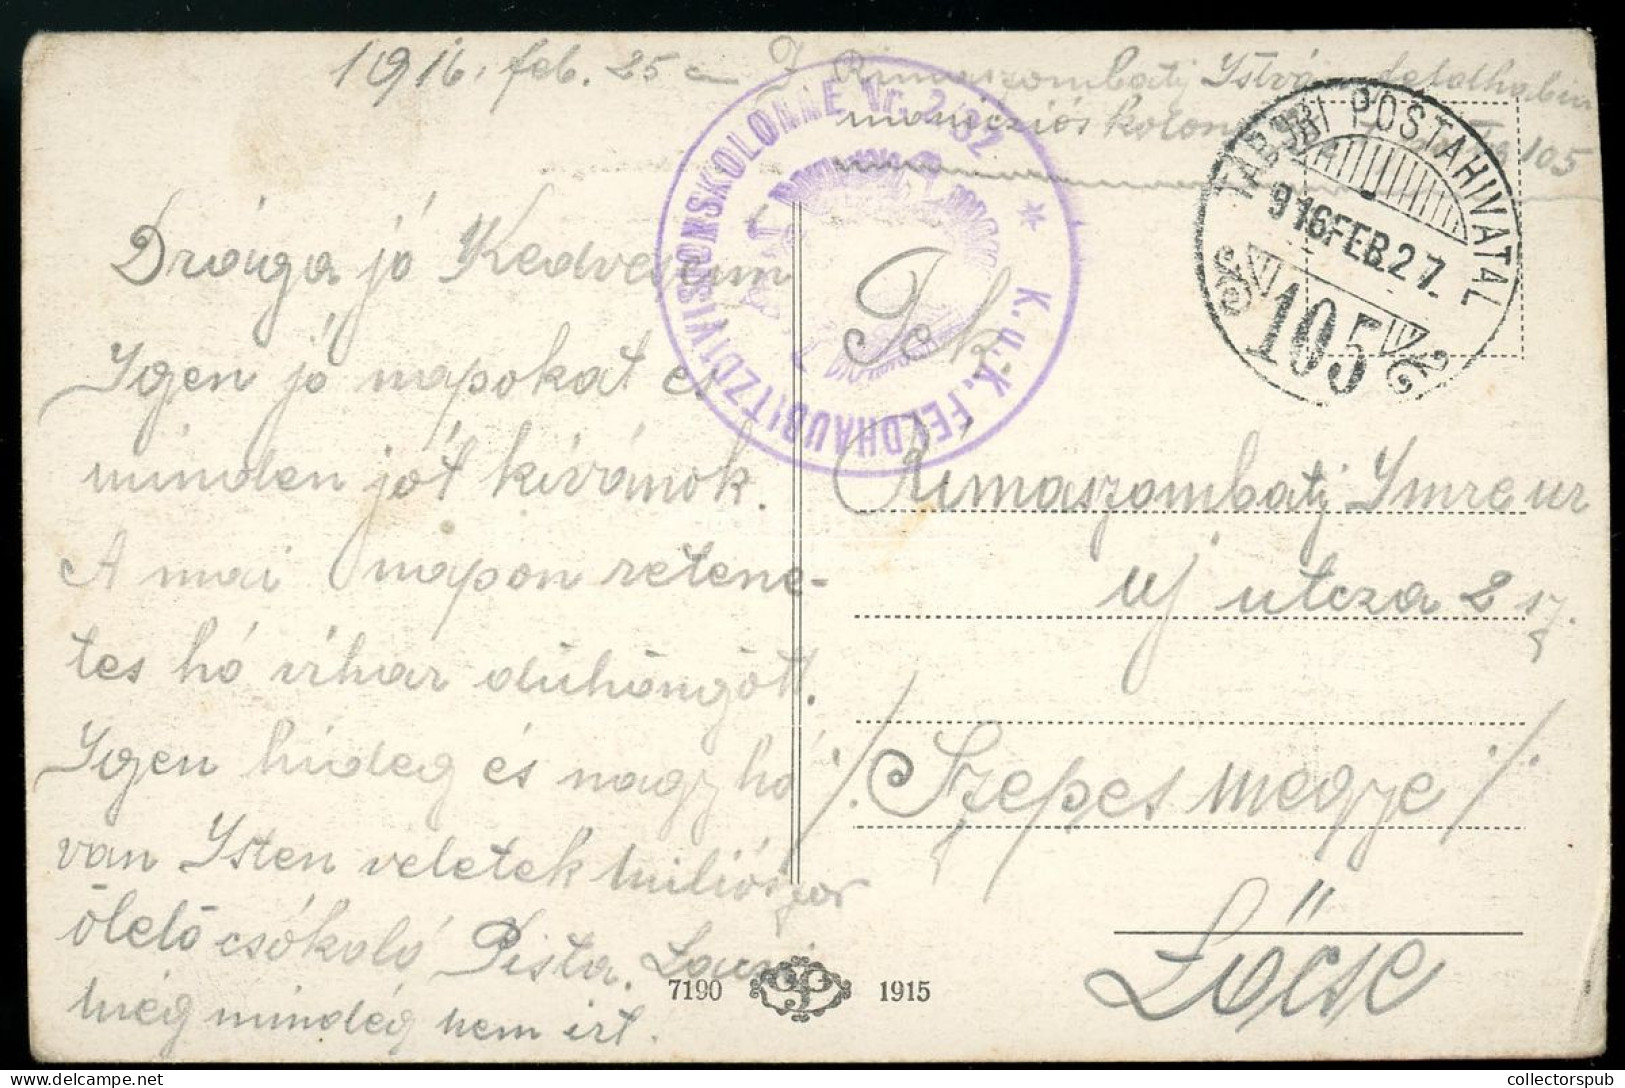 1916. feb. 25 én
Rimaszombatj István feldhabic
municziós kolon 105
K. u. K. FELDHAUBITZDIVISIONSKOLONNE Nr. 2/32 *
TÁBORI POSTAHIVATAL
916 FEB. 27.
105
Drága jó Kedveseim
Igen jó napokat és
minden jót kívánok.
A mai napon retene-
tes hó vihar dühöngött.
Igen hideg és nagy hó
van Isten veletek milliószor
ölelő csókoló Pista. Lauri
még mindég nem irt.
Tek.
Rimaszombatj Imre ur
uj utcza 2 sz.
./. Szepes megye ./.
Lőcse
7190 1915
collectorspub